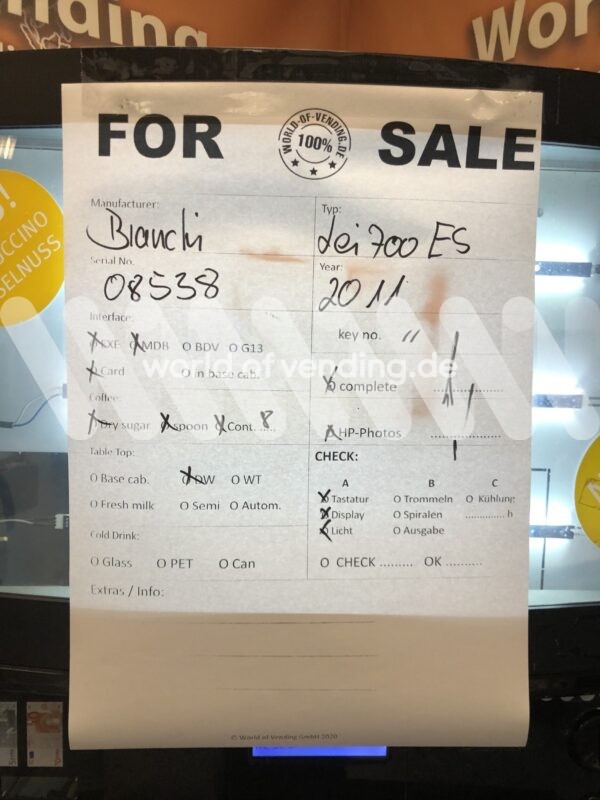 World
FOR WORLD-OF-VENDING.DE 100% SALE
Manufacturer: Typ:
Bianchi Lei 700 ES
Serial No. Year:
08538 2011
Interface: key no. 11
EXE MDB O BDV O G13
world of vending.de
Card O in base cab. complete
Coffee:
Dry sugar spoon Cont. 8 HP-Photos
Table Top: CHECK:
O Base cab. DW O WT A B C
Tastatur O Trommeln O Kühlung
O Fresh milk O Semi O Autom. Display O Spiralen h
Licht O Ausgabe
Cold Drink:
O Glass O PET O Can O CHECK ......... OK .........
Extras / Info:
© World of Vending GmbH 2020